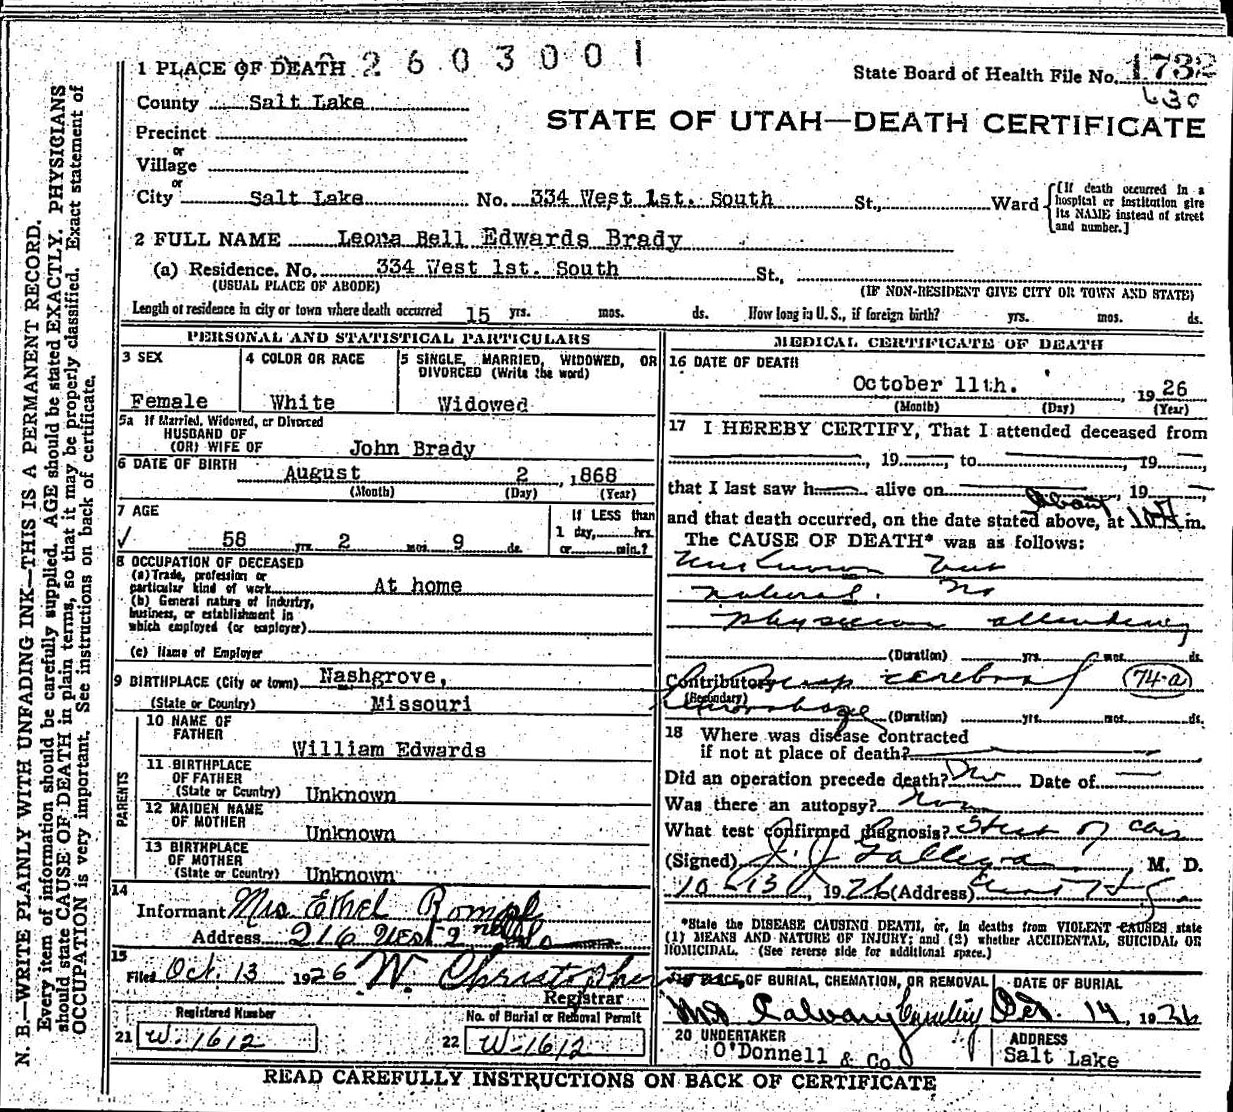 1 PLACE OF DEATH 2603001
State Board of Health File No. 1732
630
County Salt Lake
STATE OF UTAH—DEATH CERTIFICATE
Precinct
or
Village
or
City Salt Lake No. 334 West 1st. South St., Ward {[If death occurred in a hospital or institution give its NAME instead of street and number.]
2 FULL NAME Leona Bell Edwards Brady
(a) Residence. No. 334 West 1st. South St.,
(USUAL PLACE OF ABODE) (IF NON-RESIDENT GIVE CITY OR TOWN AND STATE)
Length of residence in city or town where death occurred 15 yrs. mos. ds. How long in U. S., if foreign birth? yrs. mos. ds.
PERSONAL AND STATISTICAL PARTICULARS
3 SEX
Female
4 COLOR OR RACE
White
5 SINGLE, MARRIED, WIDOWED, OR
DIVORCED (Write the word)
Widowed
5a If Married, Widowed, or Divorced
HUSBAND OF
(OR) WIFE OF John Brady
6 DATE OF BIRTH
August 2, 1868
(Month) (Day) (Year)
7 AGE
58 yrs. 2 mos. 9 ds.
If LESS than
1 day, hrs.
or min.?
8 OCCUPATION OF DECEASED
(a) Trade, profession or
particular kind of work At home
(b) General nature of industry,
business, or establishment in
which employed (or employer)
(c) Name of Employer
9 BIRTHPLACE (City or town) Nashgrove,
(State or Country) Missouri
PARENTS
10 NAME OF
FATHER
William Edwards
11 BIRTHPLACE
OF FATHER
(State or Country) Unknown
12 MAIDEN NAME
OF MOTHER
Unknown
13 BIRTHPLACE
OF MOTHER
(State or Country) Unknown
14
Informant Mrs Ethel
Address 216 West 2nd So
15
Filed Oct. 13 1926 W. Christopher
Registrar
Registered Number
21 W-1612
No. of Burial or Removal Permit
22 W-1612
MEDICAL CERTIFICATE OF DEATH
16 DATE OF DEATH
October 11th. , 1926
(Month) (Day) (Year)
17 I HEREBY CERTIFY, That I attended deceased from
, 19 , to , 19 ,
that I last saw h alive on , 19
About
and that death occurred, on the date stated above, at m.
The CAUSE OF DEATH* was as follows:
Unknown but
natural. No
physician attending
(Duration) yrs. mos. ds.
Contributory cerebral 74-a
(Secondary)
(Duration) yrs. mos. ds.
18 Where was disease contracted
if not at place of death?
Did an operation precede death? No Date of
Was there an autopsy?
What test confirmed diagnosis? of
(Signed) J. J. Galligan M. D.
10-13, 1926 (Address)
*State the DISEASE CAUSING DEATH, or, in deaths from VIOLENT CAUSES state
(1) MEANS AND NATURE OF INJURY; and (2) whether ACCIDENTAL, SUICIDAL OR
HOMICIDAL. (See reverse side for additional space.)
19 PLACE OF BURIAL, CREMATION, OR REMOVAL
Mt Calvary Cemetery
DATE OF BURIAL
Oct. 14, 1926
20 UNDERTAKER
O'Donnell & Co
ADDRESS
Salt Lake
READ CAREFULLY INSTRUCTIONS ON BACK OF CERTIFICATE
N. B.—WRITE PLAINLY WITH UNFADING INK—THIS IS A PERMANENT RECORD.
Every item of information should be carefully supplied. AGE should be stated EXACTLY. PHYSICIANS
should state CAUSE OF DEATH in plain terms, so that it may be properly classified. Exact statement of
OCCUPATION is very important. See instructions on back of certificate.